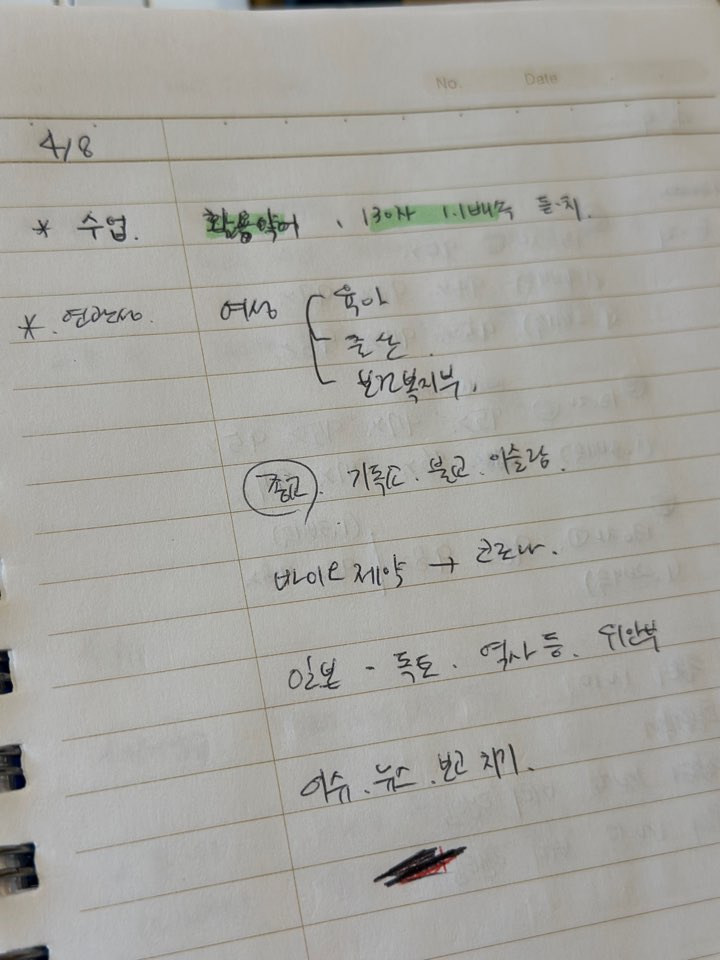 No. Date
4/8
* 수업. 활용약어, 130자 1.1배속 듣.치.
*. 연관성. 여성 육아
출산.
보건복지부.
종교. 기독교. 불교. 이슬람.
바이오제약 → 코로나.
일본 - 독도. 역사 등. 위안부
이슈. 뉴스. 보고 치기.